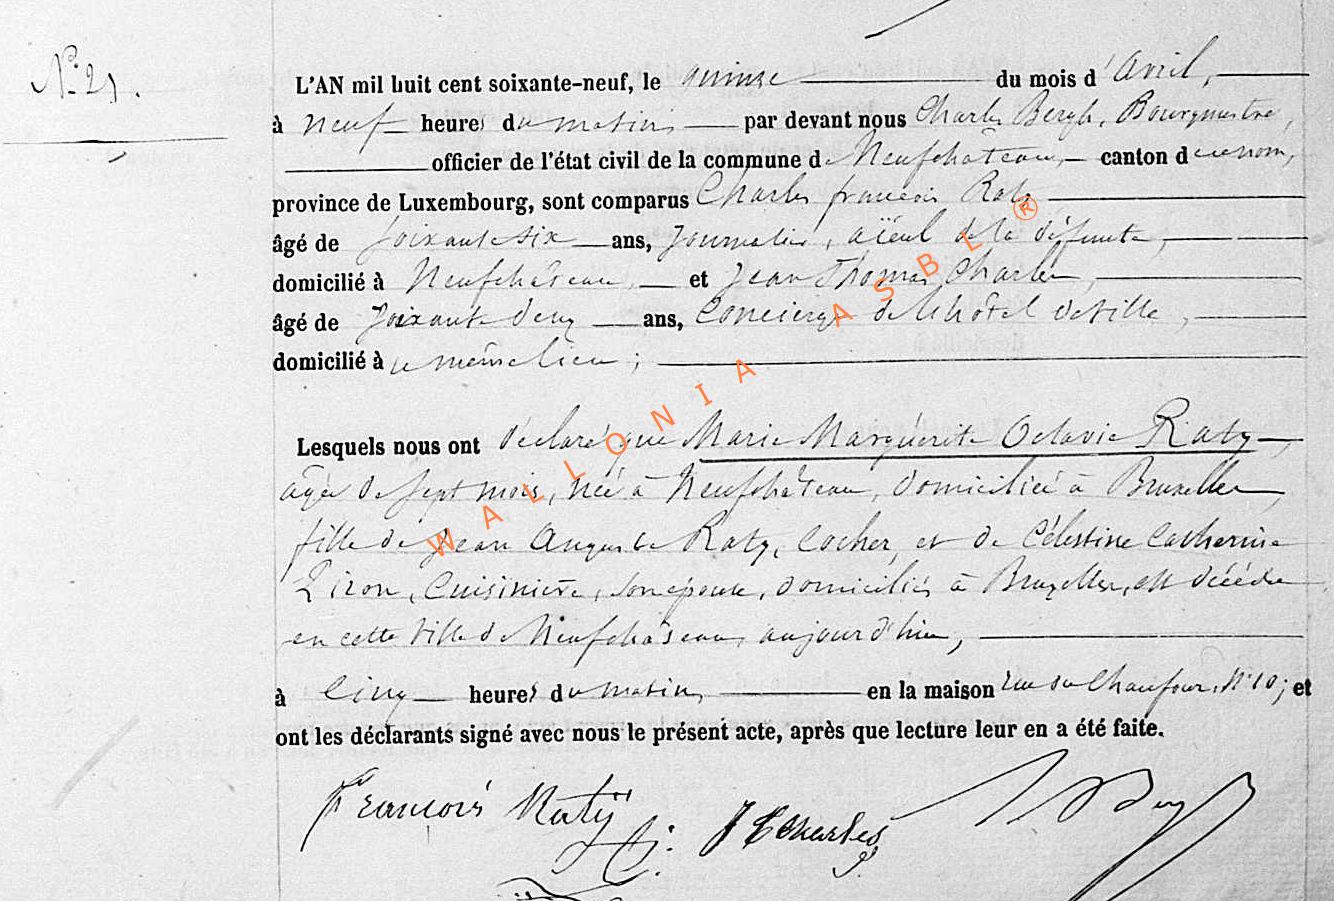 N° 21.
L'AN mil huit cent soixante-neuf, le quinze du mois d'avril,
à neuf heures du matin par devant nous Charles Bergh, Bourgmestre,
officier de l'état civil de la commune de Neufchâteau, canton de ce nom,
province de Luxembourg, sont comparus Charles françois Raty
âgé de soixante six ans, Journalier, aïeul de la défunte,
domicilié à Neufchâteau, et Jean Thomas Charles,
âgé de soixante deux ans, Concierge de l'hôtel de ville,
domicilié à ce même lieu;
Lesquels nous ont déclaré que Marie Marguérite Octavie Raty
âgée de sept mois, née à Neufchâteau, domiciliée à Bruxelles,
fille de Jean Auguste Raty, Cocher, et de Célestine Catherine
Ziron, Cuisinière, son épouse, domiciliés à Bruxelles, est décédée
en cette ville de Neufchâteau, aujourd'hui,
à cinq heures du matin, en la maison rue du Chaufour, N° 10; et
ont les déclarants signé avec nous le présent acte, après que lecture leur en a été faite.
François Ratÿ JCharles
WALLONIA ASBL ®